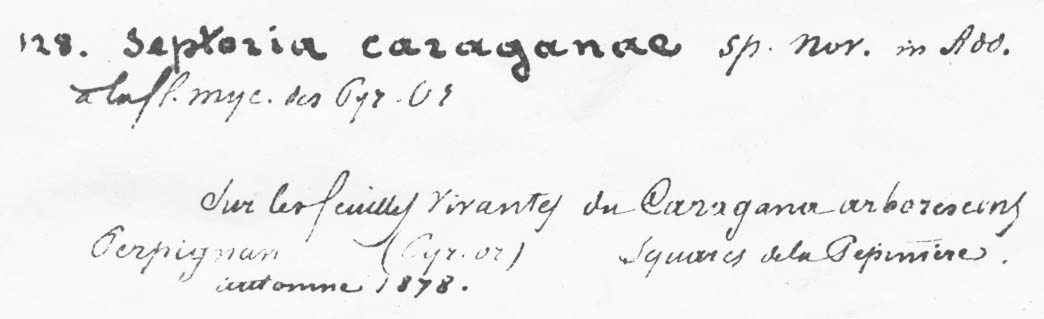 128. Septoria caraganae sp. nov. in Add.
à la fl. myc. des Pyr. Or
Sur les feuilles vivantes du Caragana arborescens
Perpignan (Pyr. or) Squares de la Pepinière.
automne 1878.